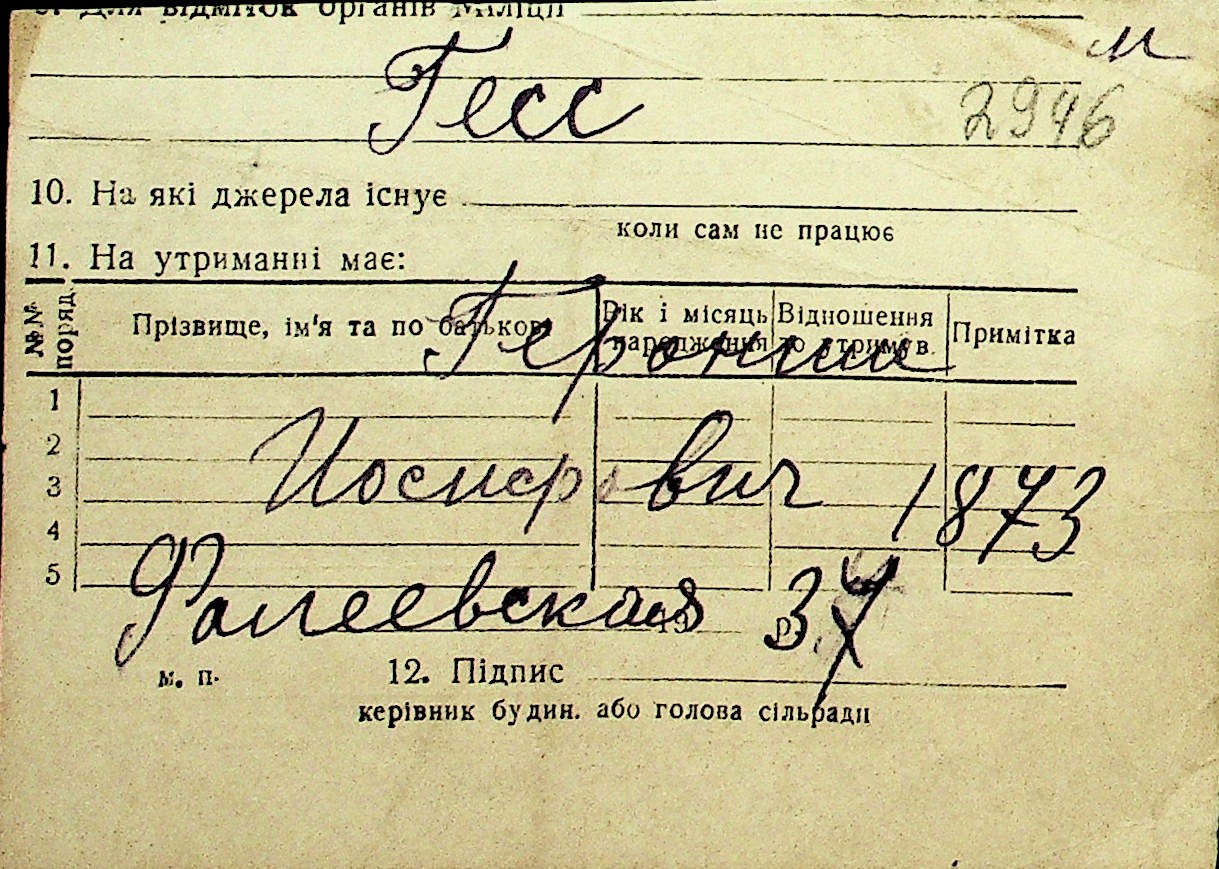 9. Для відміток органів міліції
м
Гесс
2946
10. На які джерела існує
коли сам не працює
11. На утриманні має:
№№ поряд. Прізвище, ім'я та по батькові Вік і місяць народження Відношення до утримув. Примітка
Героним
1
2
Иосифович 1873
3
4
5
Фалеевская 37
м. п. 12. Підпис
керівник будин. або голова сільради